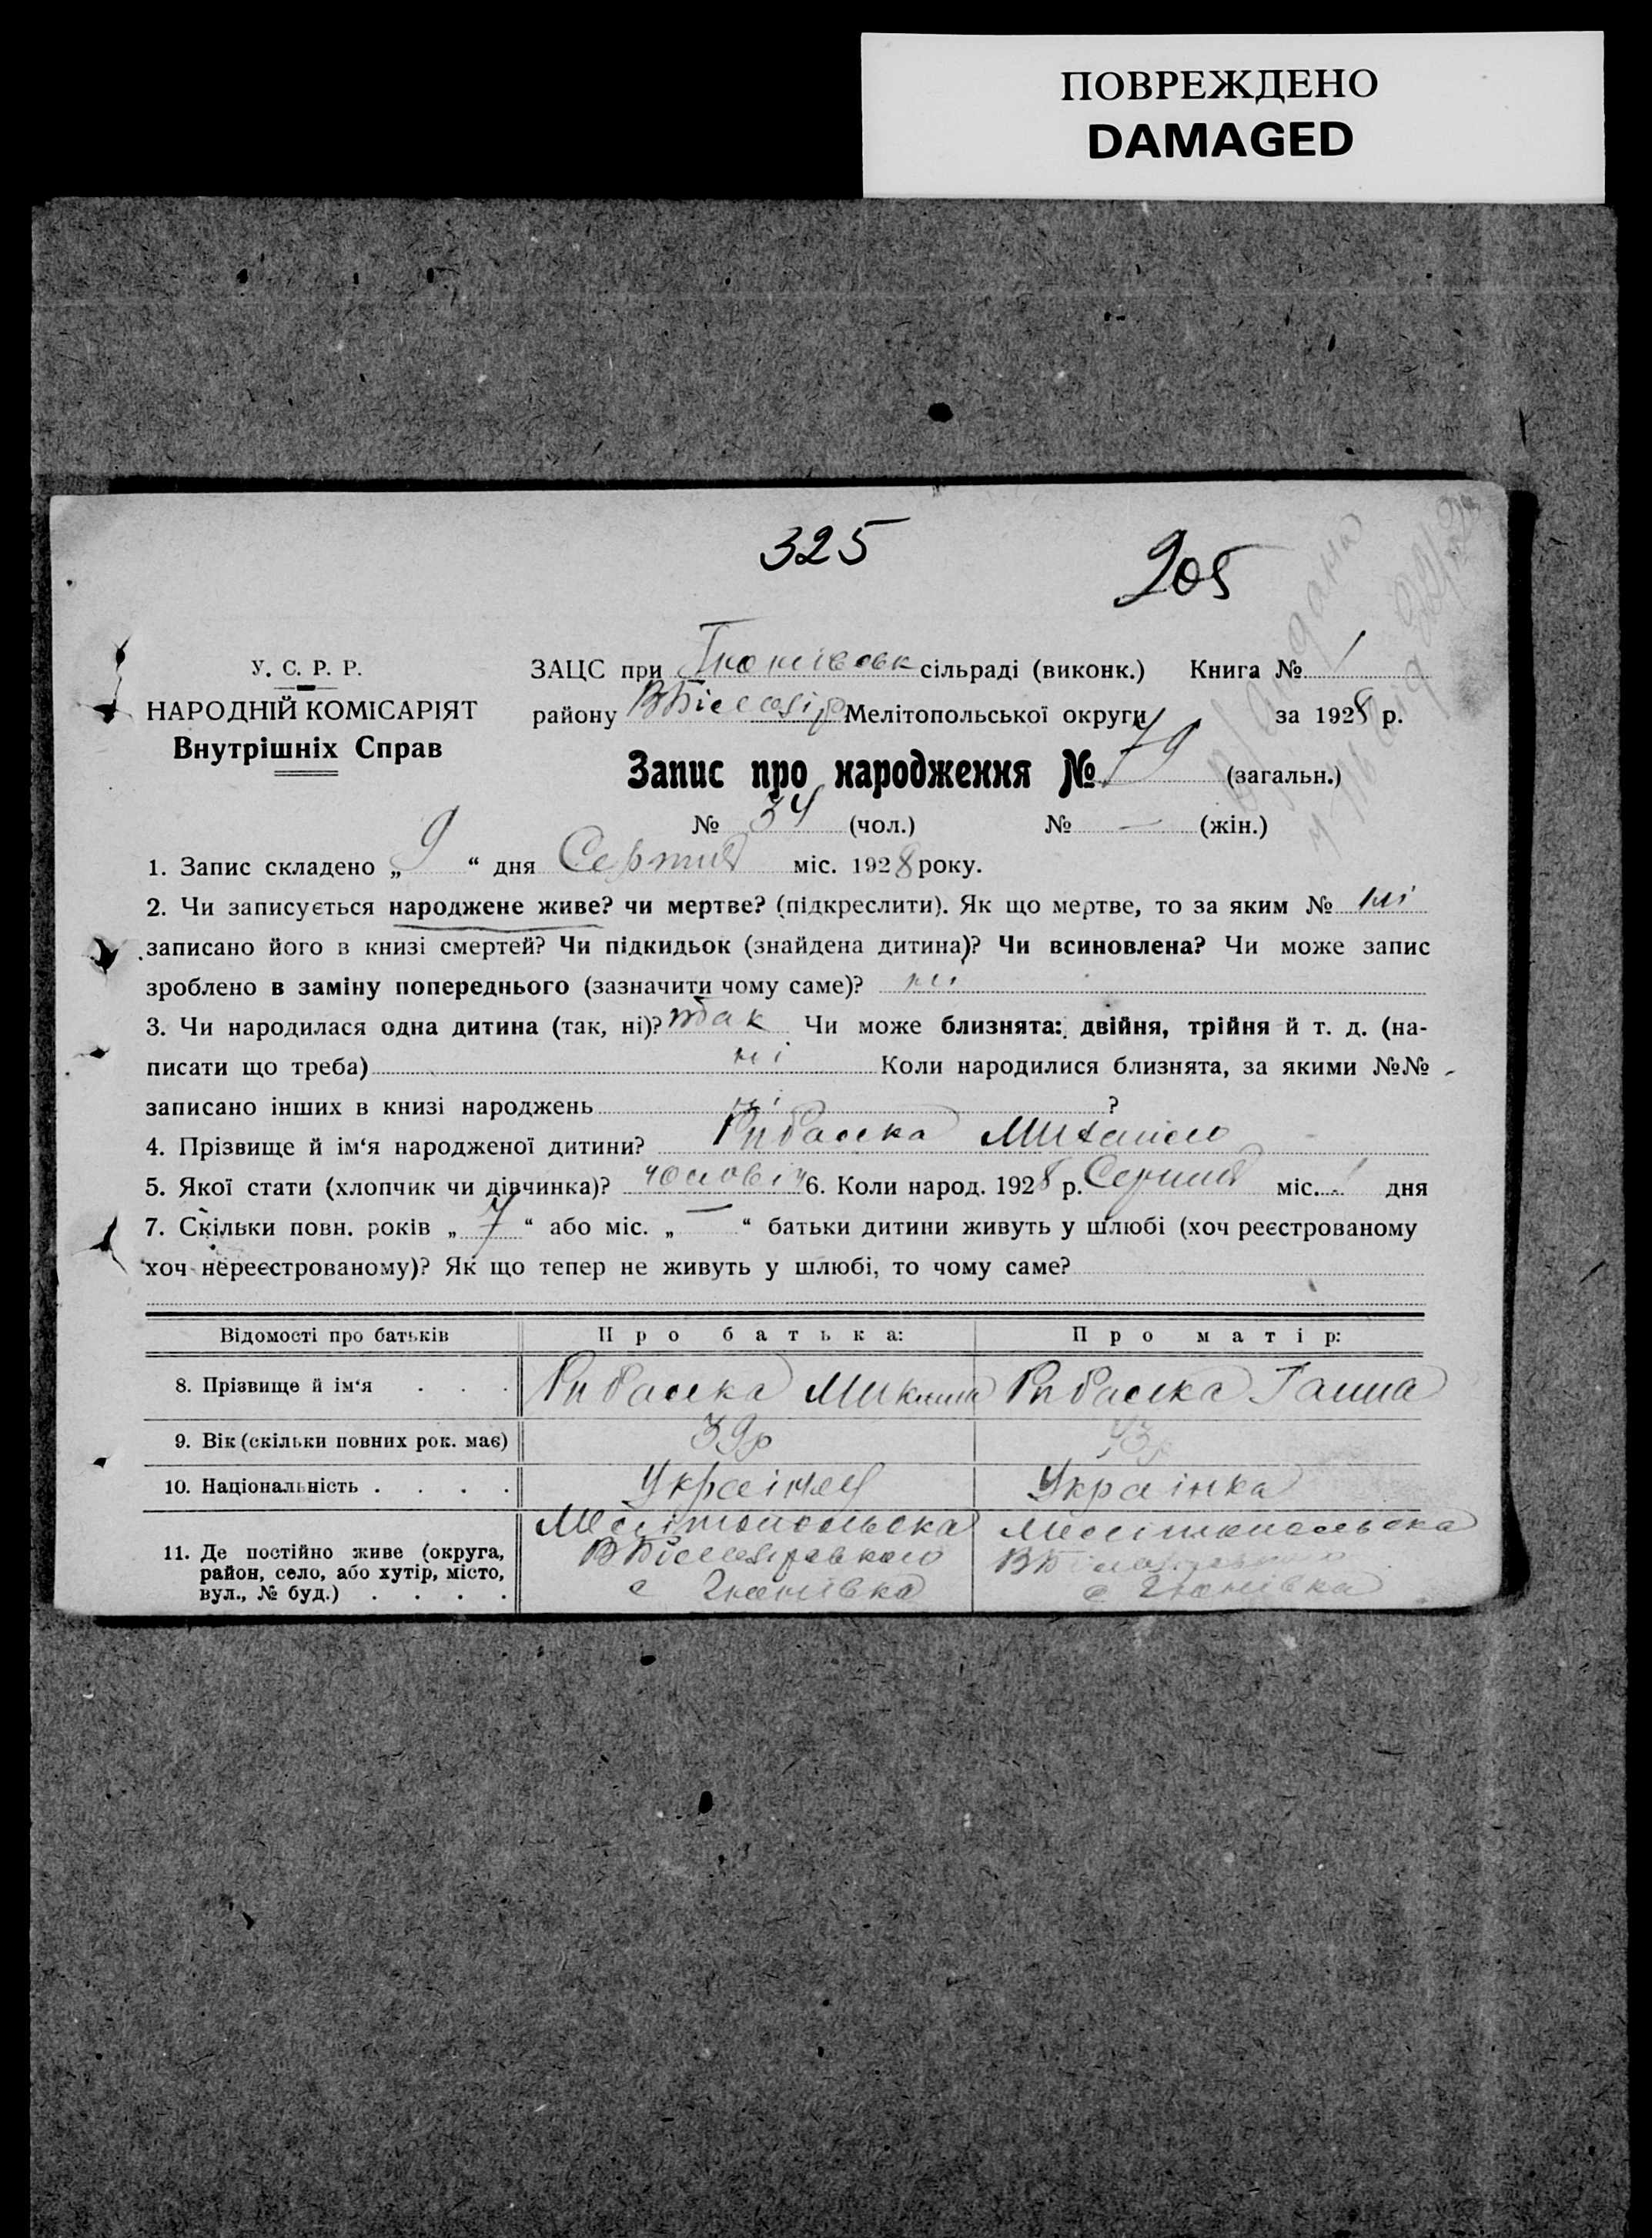 ПОВРЕЖДЕНО
DAMAGED
325
205
У. С. Р. Р.
НАРОДНІЙ КОМІСАРІЯТ
Внутрішніх Справ
ЗАЦС при сільраді (виконк.) Книга № 1
району Мелітопольської округи за 1928 р.
Запис про народження № 79 (загальн.)
№ 34 (чол.) № — (жін.)
1. Запис складено „ 9 “ дня Серпня міс. 1928 року.
2. Чи записується народжене живе? чи мертве? (підкреслити). Як що мертве, то за яким № ні
записано його в книзі смертей? Чи підкидьок (знайдена дитина)? Чи всиновлена? Чи може запис
зроблено в заміну попереднього (зазначити чому саме)? ні
3. Чи народилася одна дитина (так, ні)? так Чи може близнята: двійня, трійня й т. д. (на-
писати що треба) ні Коли народилися близнята, за якими №№
записано інших в книзі народжень ні ?
4. Прізвище й ім‘я народженої дитини? Рибалка Михайло
5. Якої стати (хлопчик чи дівчинка)? чоловіч 6. Коли народ. 1928 р. Серпня міс. 1 дня
7. Скільки повн. років „ 7 “ або міс. „ — “ батьки дитини живуть у шлюбі (хоч реєстрованому
хоч нереєстрованому)? Як що тепер не живуть у шлюбі, то чому саме?
Відомості про батьків Про батька: Про матір:
8. Прізвище й ім‘я . . . Рибалка Рибалка Ганна
9. Вік (скільки повних рок. має) 39р
10. Національність . . . . Українец Українка
11. Де постійно живе (округа, Мелітопольска Мелітопольска
район, село, або хутір, місто,
вул., № буд.) . . . . с с